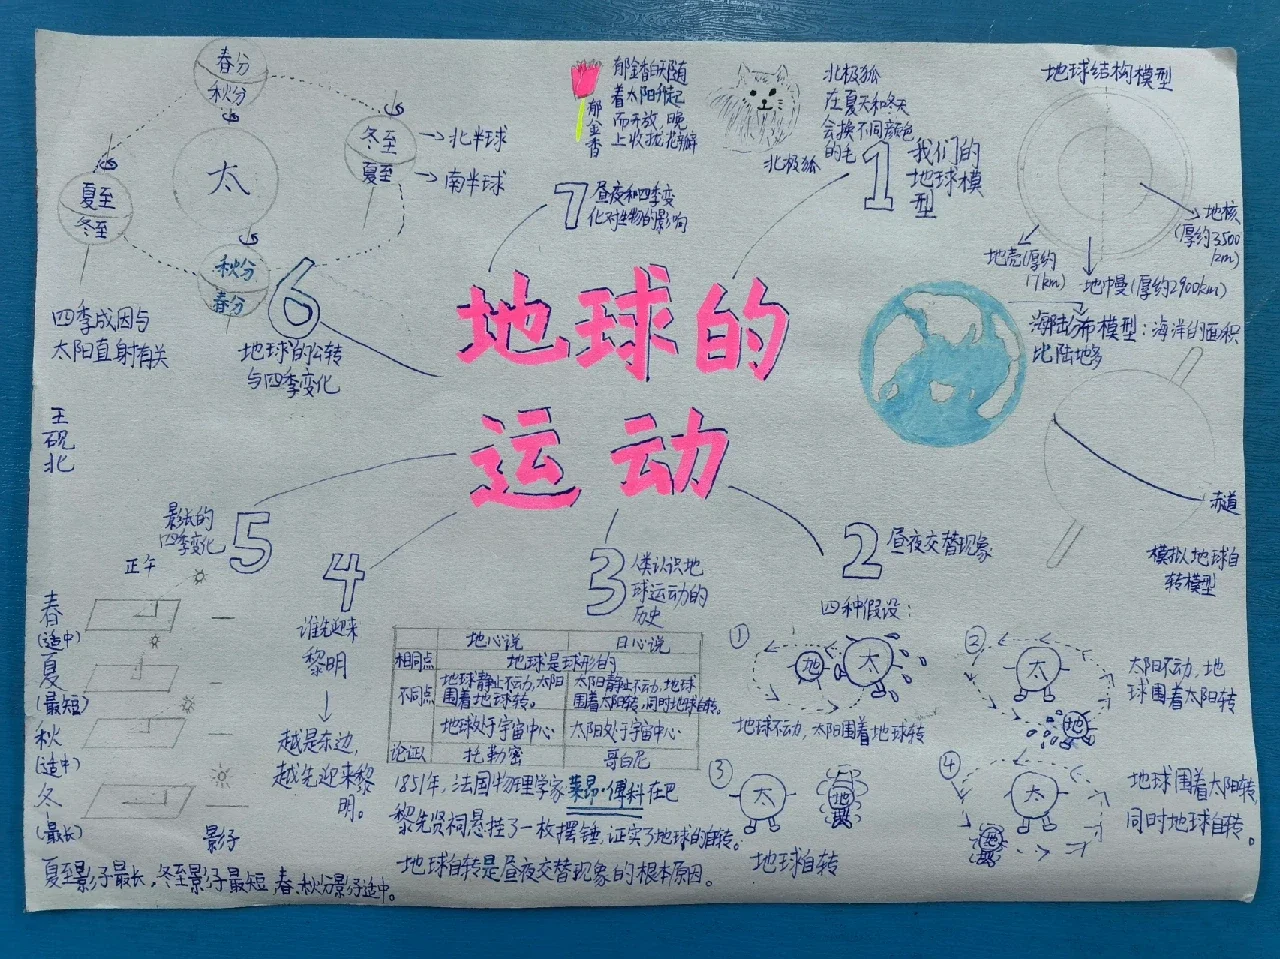 地球的
运动
1
我们的
地球模
型
北极狐
在夏天和冬天
会换不同颜色
的毛
北极狐
地球结构模型
地核
(厚约3500
km)
地壳(厚约
17km)
地幔(厚约2900km)
海陆分布模型：海洋的面积
比陆地多
赤道
模拟地球自
转模型
2
昼夜交替现象
四种假设：
①
地
太
地球不动，太阳围着地球转
②
太
地
太阳不动，地
球围着太阳转
③
太
地
地球自转
④
太
地
地球围着太阳转，
同时地球自转。
3
人类认识地
球运动的
历史
地心说
日心说
相同点
地球是球形的
不同点
地球静止不动，太阳
围着地球转。
太阳静止不动，地球
围着太阳转，同时地球自转。
地球处于宇宙中心
太阳处于宇宙中心
论证人
托勒密
哥白尼
1851年，法国物理学家莱昂·傅科在巴
黎先贤祠悬挂了一枚摆锤，证实了地球的自转。
地球自转是昼夜交替现象的根本原因。
4
谁先迎来
黎明
越是东边，
越先迎来黎
明。
5
影长的
四季变化
正午
春
(适中)
夏
(最短)
秋
(适中)
冬
(最长)
影子
夏至影子最长，冬至影子最短，春、秋分影子适中。
6
地球的公转
与四季变化
春分
秋分
太
冬至
夏至
北半球
南半球
夏至
冬至
秋分
春分
四季成因与
太阳直射有关
7
昼夜和四季变
化对生物的影响
郁金香
郁金香白天随
着太阳升起
而开放，晚
上收拢花瓣
王
砚
北